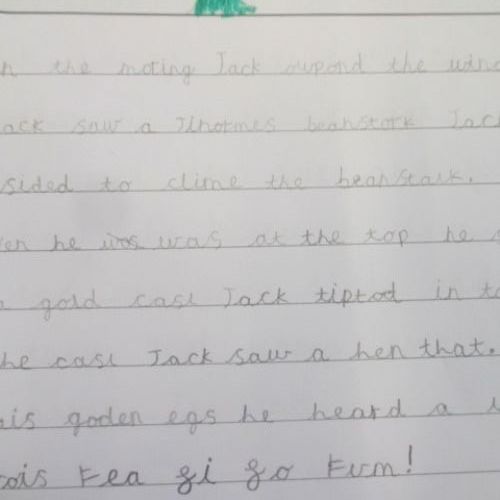 n the moting Jack oupond the wind
ack saw a Ilhormes beanstork Jack
sided to clime the beanstalk.
en he was was at the top he s
a gold casl Jack tiptod in to
he casl Jack saw a hen that.
ais goden egs he heard a
cois Fea fi fo Fum!